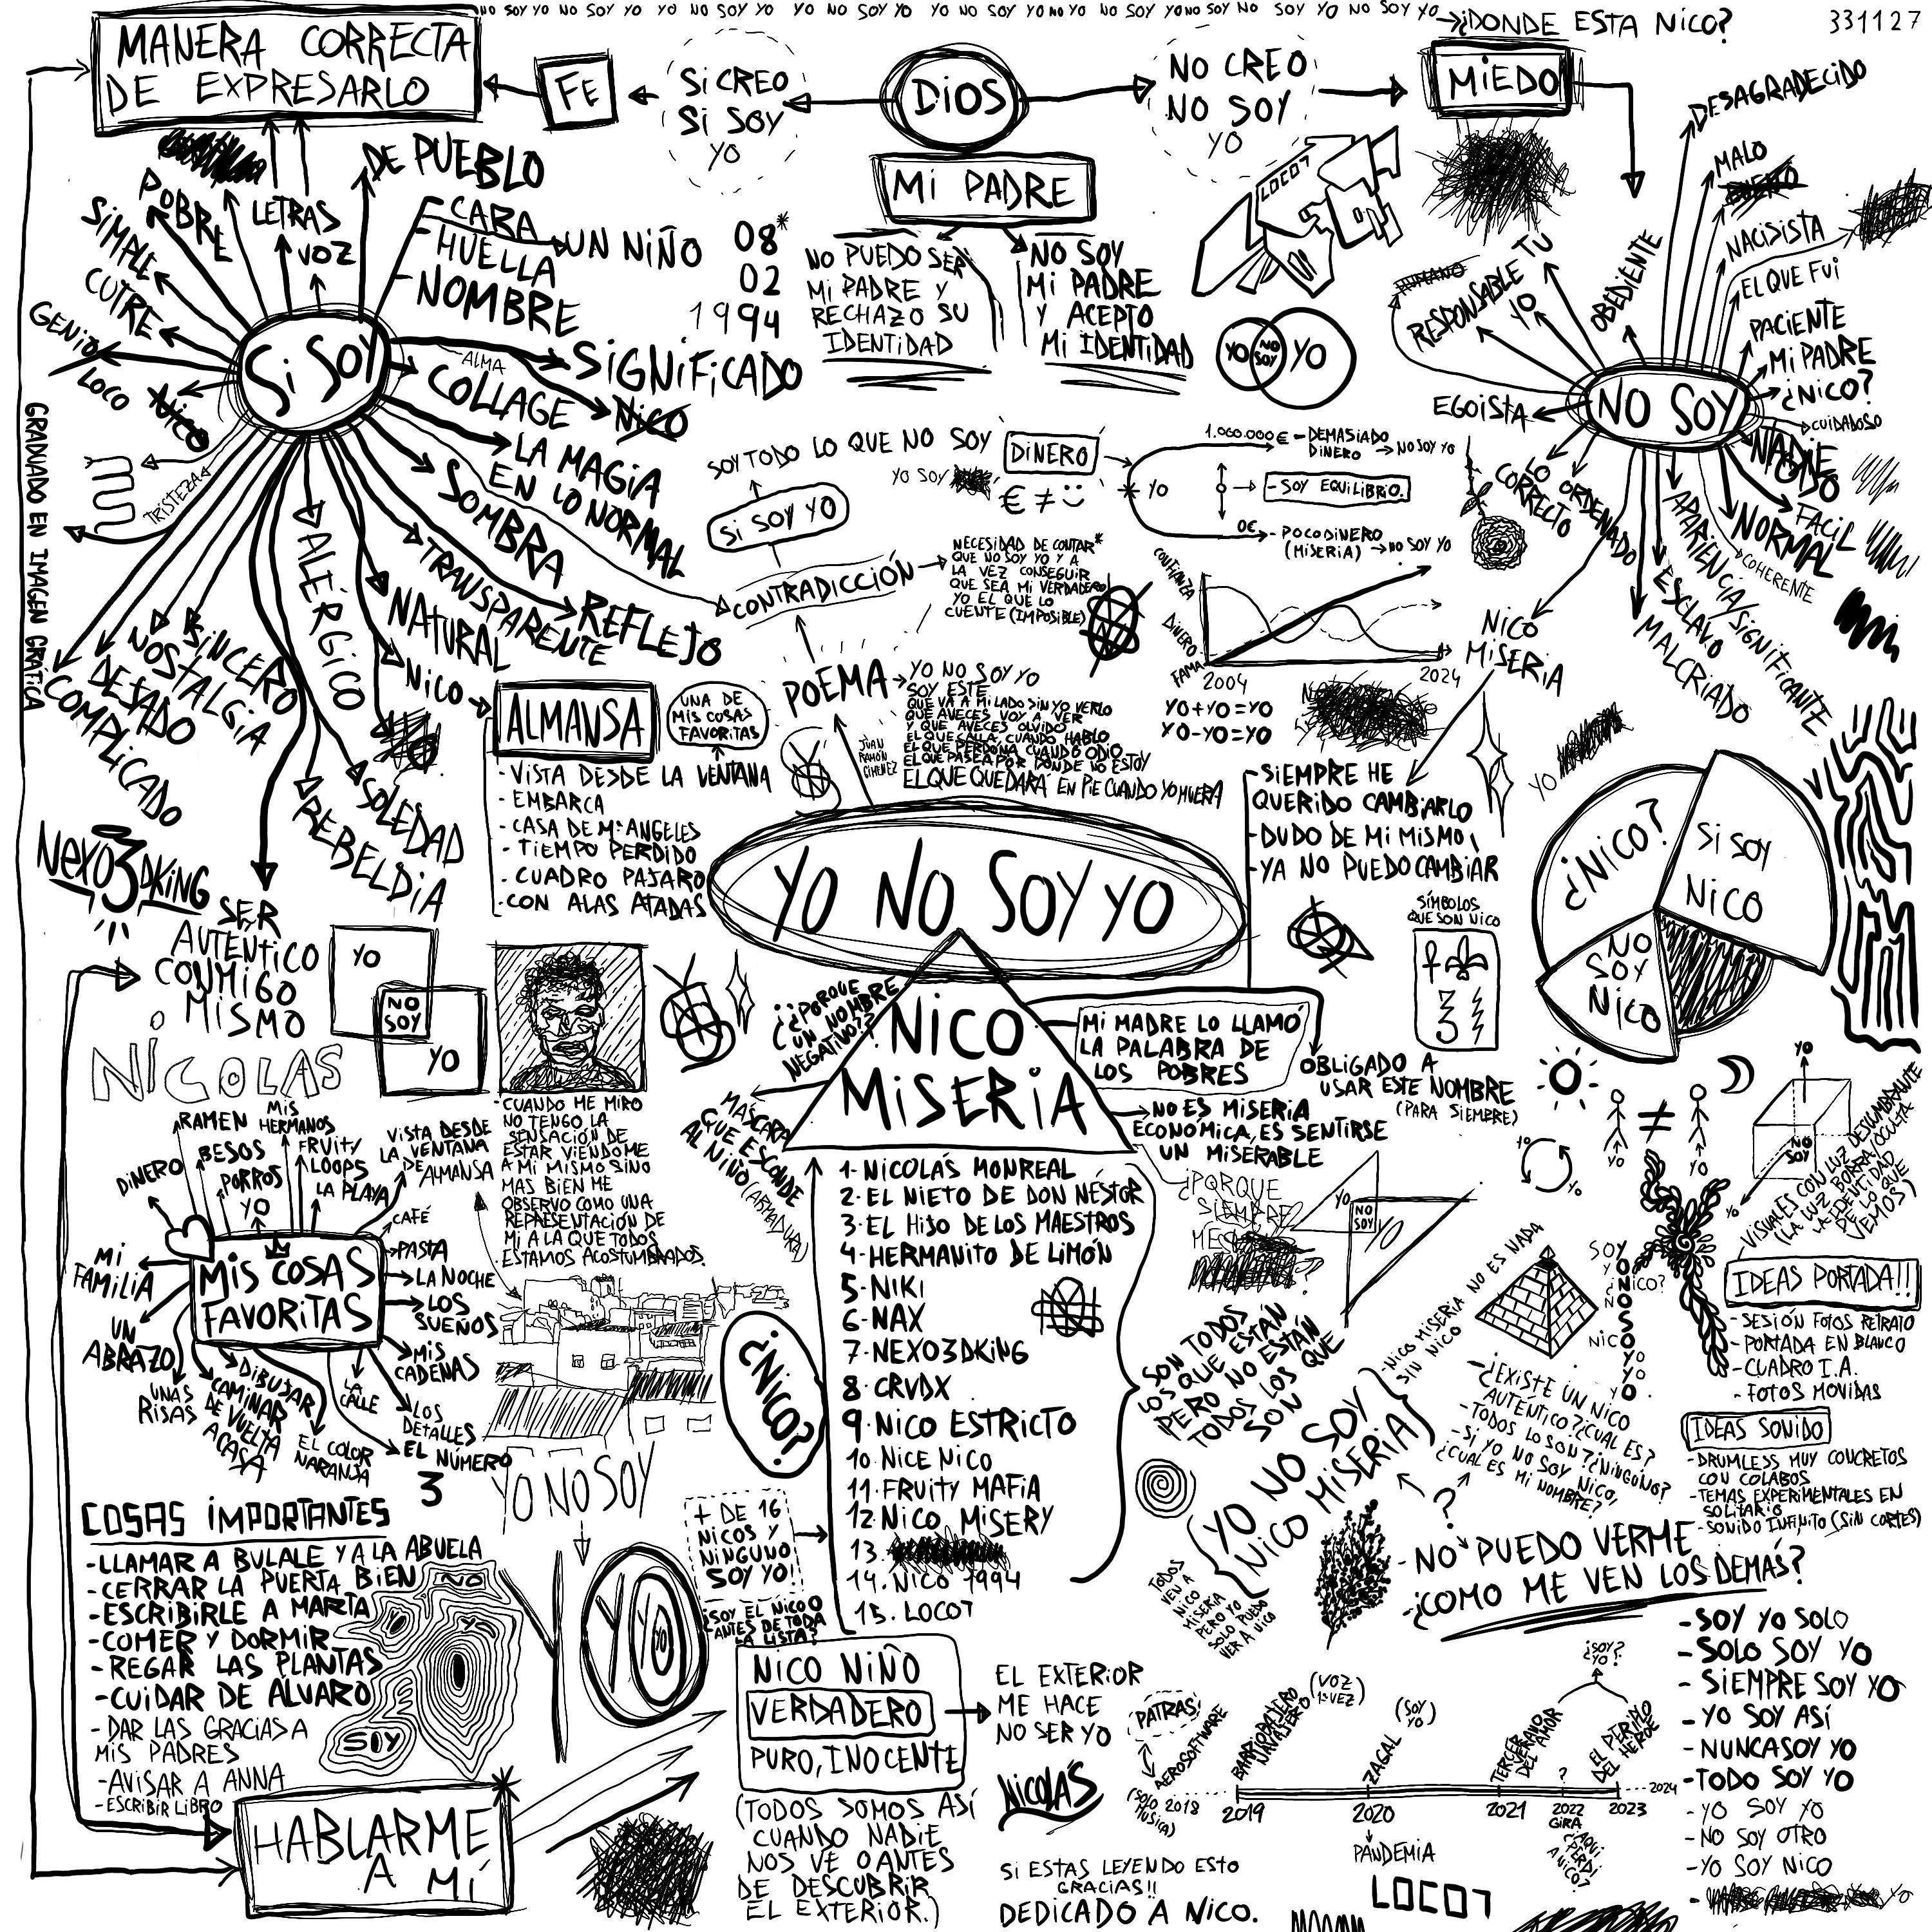 NO SOY YO NO SOY YO YO NO SOY YO YO NO SOY YO YO NO SOY YO NO YO NO SOY YO NO SOY NO SOY YO NO SOY YO
¿DONDE ESTA NICO?
331127
MANERA CORRECTA
DE EXPRESARLO
FE
SI CREO
SI SOY
YO
DIOS
NO CREO
NO SOY
YO
MIEDO
MI PADRE
NO PUEDO SER
MI PADRE Y
RECHAZO SU
IDENTIDAD
NO SOY
MI PADRE
Y ACEPTO
MI IDENTIDAD
LOCO7
YO
NO
SOY
YO
SI SOY
DE PUEBLO
LETRAS
VOZ
POBRE
SIMPLE
CUTRE
GENIO/
LOCO
NICO
TRISTEZA
CARA
HUELLA
NOMBRE
UN NIÑO
08*
02
1994
SIGNIFICADO
ALMA
COLLAGE
NICO
LA MAGIA
EN LO NORMAL
SOMBRA
REFLEJO
TRANSPARENTE
NATURAL
NICO
ALÉRGICO
SOLEDAD
REBELDIA
SINCERO
NOSTALGIA
DESADO
COMPLICADO
SER
AUTENTICO
CONMIGO
MISMO
GRADUADO EN IMAGEN GRÁFICA
NO SOY
DESAGRADECIDO
MALO
NACISISTA
EL QUE FUI
PACIENTE
MI PADRE
¿NICO?
CUIDADOSO
NADIE
FACIL
NORMAL
COHERENTE
APARIENCIA/SIGNIFICANTE
ESCLAVO
MALCRIADO
ORDENADO
LO CORRECTO
EGOISTA
HUMANO
RESPONSABLE
YO
TU
OBEDIENTE
NICO
MISERIA
SOY TODO LO QUE NO SOY
YO SOY
SI SOY YO
CONTRADICCIÓN
NECESIDAD DE CONTAR*
QUE NO SOY YO Y A
LA VEZ CONSEGUIR
QUE SEA MI VERDADERO
YO EL QUE LO
CUENTE (IMPOSIBLE)
DINERO
€ ≠ :)
YO
1.000.000€ - DEMASIADO
DINERO → NO SOY YO
- SOY EQUILIBRIO.
0€ - POCO DINERO
(MISERIA) → NO SOY YO
CONFIANZA
DINERO
FAMA
2004
2024
YO+YO=YO
YO-YO=YO
YO
POEMA
YO NO SOY YO
SOY ESTE
QUE VA A MI LADO SIN YO VERLO
QUE AVECES VOY A VER
Y QUE AVECES OLVIDO
EL QUE CALLA, CUANDO HABLO
EL QUE PERDONA CUANDO ODIO
EL QUE PASEA POR DONDE NO ESTOY
EL QUE QUEDARÁ EN PIE CUANDO YO MUERA
JUAN
RAMÓN
GIMENEZ
ALMANSA
UNA DE
MIS COSAS
FAVORITAS
- VISTA DESDE LA VENTANA
- EMBARCA
- CASA DE Mª ANGELES
- TIEMPO PERDIDO
- CUADRO PAJARO
- CON ALAS ATADAS
NEXO3DKING
YO NO SOY YO
- SIEMPRE HE
QUERIDO CAMBIARLO
- DUDO DE MI MISMO
- YA NO PUEDO CAMBIAR
SÍMBOLOS
QUE SON NICO
¿NICO?
SI SOY
NICO
NO
SOY
NICO
YO
NO
SOY
YO
NICOLAS
- CUANDO ME MIRO
NO TENGO LA
SENSACIÓN DE
ESTAR VIÉNDOME
A MI MISMO SINO
MAS BIEN ME
OBSERVO COMO UNA
REPRESENTACIÓN DE
MI A LA QUE TODOS
ESTAMOS ACOSTUMBRADOS.
¿¿PORQUE
UN NOMBRE
NEGATIVO??
NICO
MISERIA
MÁSCARA
QUE ESCONDE
AL NIÑO (ARMADURA)
MI MADRE LO LLAMÓ
LA PALABRA DE
LOS POBRES
OBLIGADO A
USAR ESTE NOMBRE
(PARA SIEMPRE)
NO ES MISERIA
ECONOMICA, ES SENTIRSE
UN MISERABLE
¿PORQUE
SIEMPRE
ME
1- NICOLÁS MONREAL
2- EL NIETO DE DON NÉSTOR
3- EL HIJO DE LOS MAESTROS
4- HERMANITO DE LIMÓN
5- NIKI
6- NAX
7- NEXO3DKING
8- CRVDX
9- NICO ESTRICTO
10- NICE NICO
11- FRUITY MAFIA
12- NICO MISERY
13.
14. NICO 1994
15. LOCO7
¿NICO?
+ DE 16
NICOS Y
NINGUNO
SOY YO!
¿SOY EL NICO 0
ANTES DE TODA
LA LISTA?
SON TODOS
LOS QUE ESTÁN
PERO NO ESTÁN
TODOS LOS QUE
SON
YO
NO
SOY
YO
YO
≠
YO
YO
YO
YO
NO
SOY
YO
- VISUALES CON LUZ DESLUMBRANTE
(LA LUZ BORRA/OCULTA
LA IDENTIDAD
DE LO QUE
VEMOS)
IDEAS PORTADA!!
- SESIÓN FOTOS RETRATO
- PORTADA EN BLANCO
- CUADRO I.A.
- FOTOS MOVIDAS
IDEAS SONIDO
- DRUMLESS MUY CONCRETOS
CON COLABOS
- TEMAS EXPERIMENTALES EN
SOLITARIO
- SONIDO INFINITO (SIN CORTES)
- NICO MISERIA NO ES NADA
SIN NICO
SOY
YO
¿NICO?
NO
SOY
NICO
YO
YO
- ¿EXISTE UN NICO
AUTENTICO? ¿CUAL ES?
- TODOS LO SON? ¿NINGUNO?
- SI YO NO SOY NICO,
¿CUAL ES MI NOMBRE?
YO NO SOY
NICO MISERIA
?
TODOS
VEN A
NICO
MISERIA
PERO YO
SOLO PUEDO
VER A NICO
- NO PUEDO VERME
¿COMO ME VEN LOS DEMÁS?
- SOY YO SOLO
- SOLO SOY YO
- SIEMPRE SOY YO
- YO SOY ASÍ
- NUNCA SOY YO
- TODO SOY YO
- YO SOY YO
- NO SOY OTRO
- YO SOY NICO
MIS COSAS
FAVORITAS
DINERO
RAMEN
BESOS
PORROS
YO
MIS
HERMANOS
FRUITY
LOOPS
LA PLAYA
VISTA DESDE
LA VENTANA
DE ALMANSA
CAFÉ
PASTA
LA NOCHE
LOS
SUEÑOS
MIS
CADENAS
LOS
DETALLES
EL NÚMERO
3
LA
CALLE
EL COLOR
NARANJA
DIBUJAR
CAMINAR
DE VUELTA
A CASA
UNAS
RISAS
UN
ABRAZO
MI
FAMILIA
YO NO SOY
Y
YO
YO
COSAS IMPORTANTES
- LLAMAR A BULALE Y A LA ABUELA
- CERRAR LA PUERTA BIEN
- ESCRIBIRLE A MARTA
- COMER Y DORMIR
- REGAR LAS PLANTAS
- CUIDAR DE ÁLVARO
- DAR LAS GRACIAS A
MIS PADRES
- AVISAR A ANNA
- ESCRIBIR LIBRO
NO
YO
SOY
HABLARME
A MÍ
*
NICO NIÑO
VERDADERO
PURO, INOCENTE
(TODOS SOMOS ASÍ
CUANDO NADIE
NOS VE O ANTES
DE DESCUBRIR
EL EXTERIOR.)
EL EXTERIOR
ME HACE
NO SER YO
NICOLÁS
SI ESTAS LEYENDO ESTO
GRACIAS!!
DEDICADO A NICO.
PATRAS
AEROSOFTWARE
(SOLO 2018
MUSICA)
BARRIOBAJERO
NAVAJERO
(VOZ
1ª VEZ)
ZAGAL
(SOY
YO)
TERCER
VERANO
DEL AMOR
?
¿SOY
YO?
EL PERIPLO
DEL HÉROE
2019
2020
2021
2022
2023
2024
PANDEMIA
GIRA
¿AQUI
PERDI
A NICO?
LOCO7